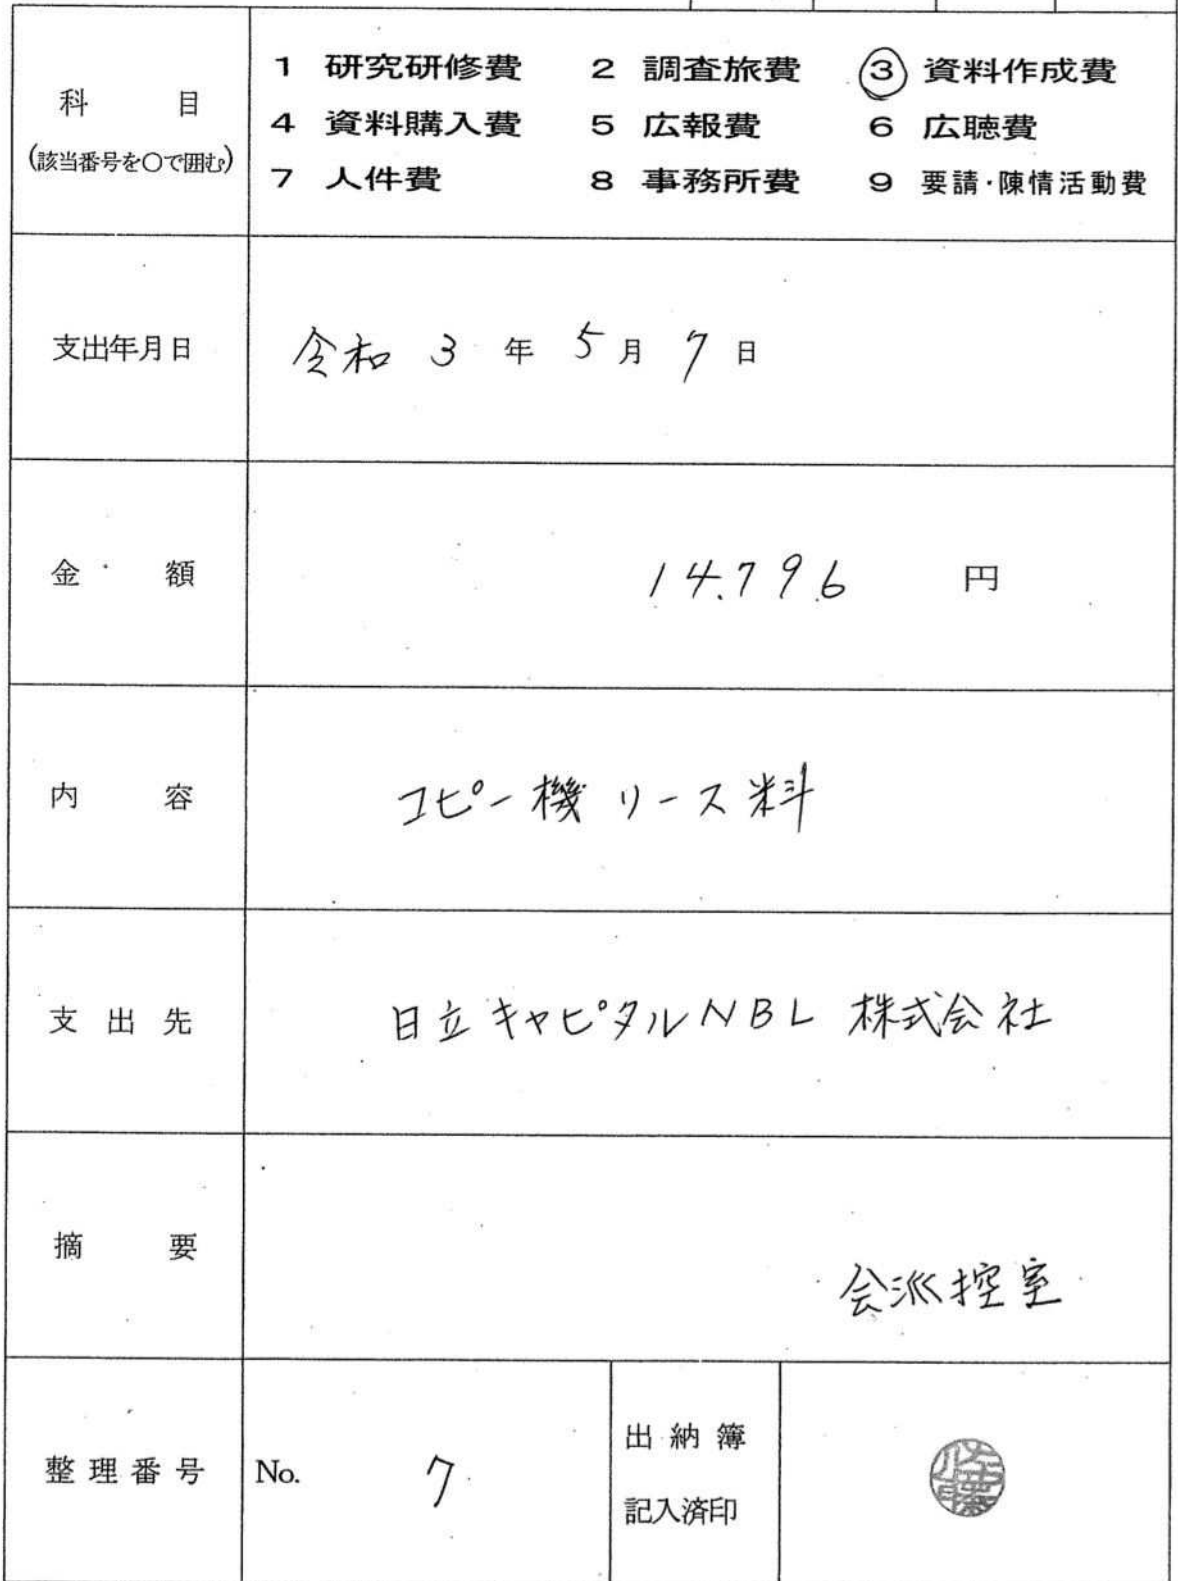 科 目
(該当番号を○で囲む)
1 研究研修費 2 調査旅費 ③ 資料作成費
4 資料購入費 5 広報費 6 広聴費
7 人件費 8 事務所費 9 要請・陳情活動費
支出年月日 令和 3 年 5 月 7 日
金 額 14.796 円
内 容 コピー機 リース料
支 出 先 日立キャピタルNBL 株式会社
摘 要
会派控室
整 理 番 号 No. 7
出 納 簿
記入済印
佐藤